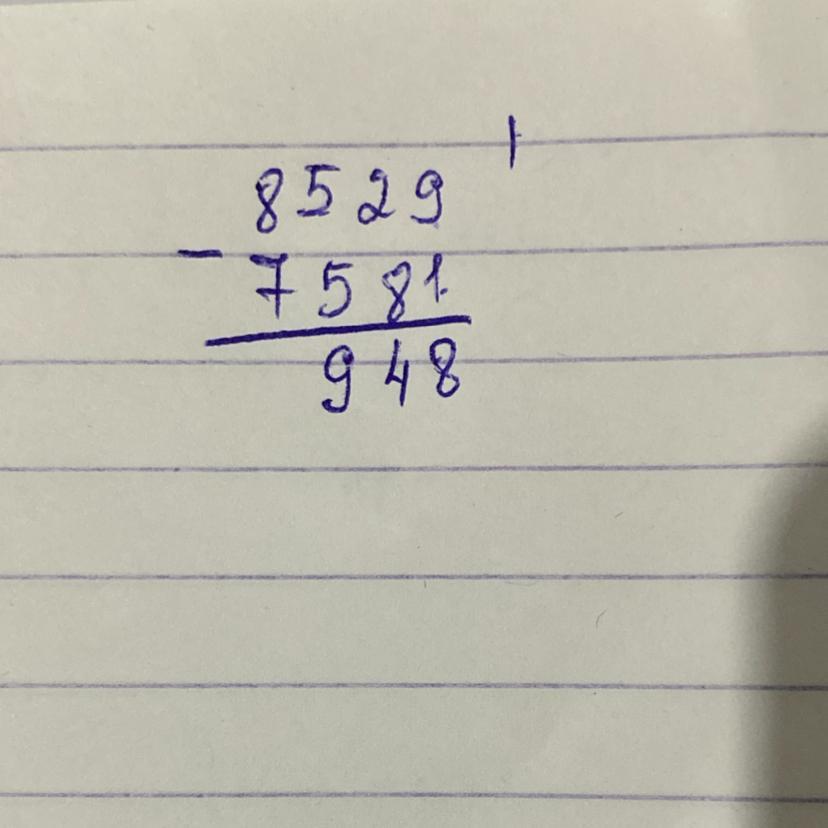 1
8529
-
7581
948